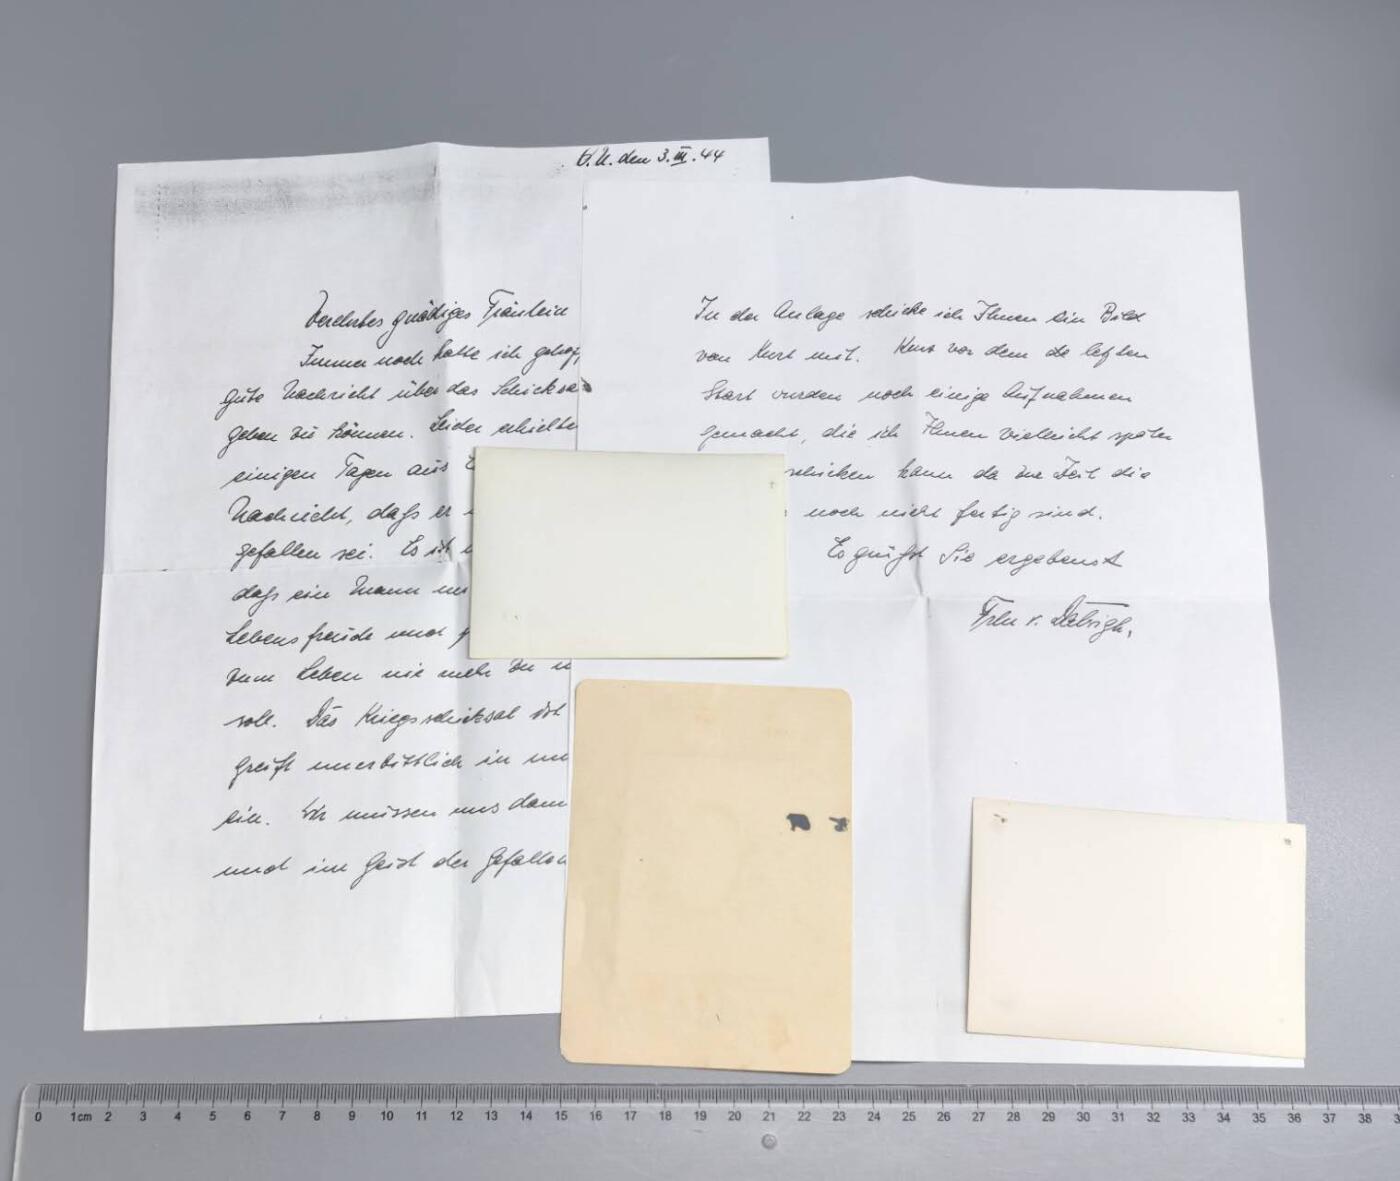 O.U. den 3.III.44
Verehrtes gnädiges Fräulein
Immer noch hatte ich gehof
gute Nachricht über das Schicksa
geben zu können. Leider erhielte
einigen Tagen aus
Nachricht, dass er
gefallen sei. Es ist
dass ein Mann
Lebensfreude und
zum Leben nie mehr zu
soll. Das Kriegsschicksal ist
greift unerbittlich in un
ein. Wir müssen uns dam
und im Geist der Gefallen
In der Anlage schicke ich Ihnen ein Bild
von Kurt mit. Kurz vor dem letzten
Start wurden noch einige Aufnahmen
gemacht, die ich Ihnen vielleicht später
schicken kann da zur Zeit die
noch nicht fertig sind.
Es grüßt Sie ergebenst
Frhr v.
0 1cm 2 3 4 5 6 7 8 9 10 11 12 13 14 15 16 17 18 19 20 21 22 23 24 25 26 27 28 29 30 31 32 33 34 35 36 37 38